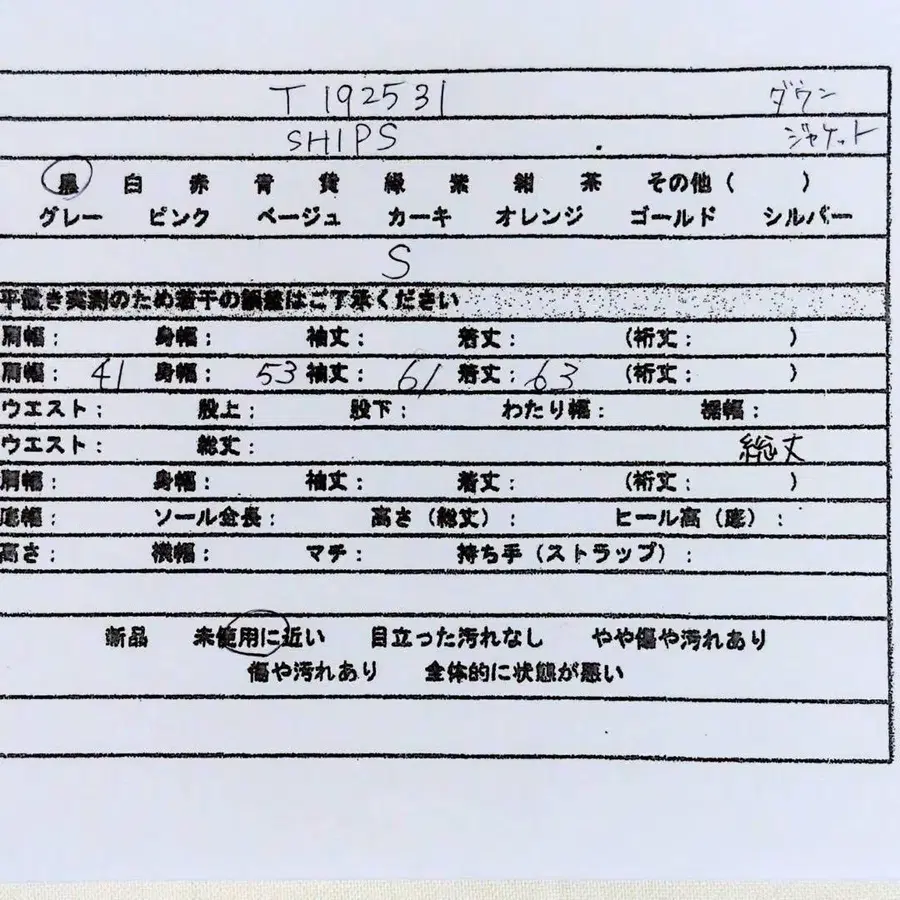 T192531 ダウン
SHIPS ジャケット
黒 白 赤 青 黄 緑 紫 紺 茶 その他（ ）
グレー ピンク ベージュ カーキ オレンジ ゴールド シルバー
S
平置き実測のため若干の誤差はご了承ください
肩幅： 身幅： 袖丈： 着丈： （裄丈： ）
肩幅： 41 身幅： 53 袖丈： 61 着丈： 63 （裄丈： ）
ウエスト： 股上： 股下： わたり幅： 裾幅：
ウエスト： 総丈： 総丈
肩幅： 身幅： 袖丈： 着丈： （裄丈： ）
底幅： ソール全長： 高さ（総丈）： ヒール高（底）：
高さ： 横幅： マチ： 持ち手（ストラップ）：
新品 未使用に近い 目立った汚れなし やや傷や汚れあり
傷や汚れあり 全体的に状態が悪い